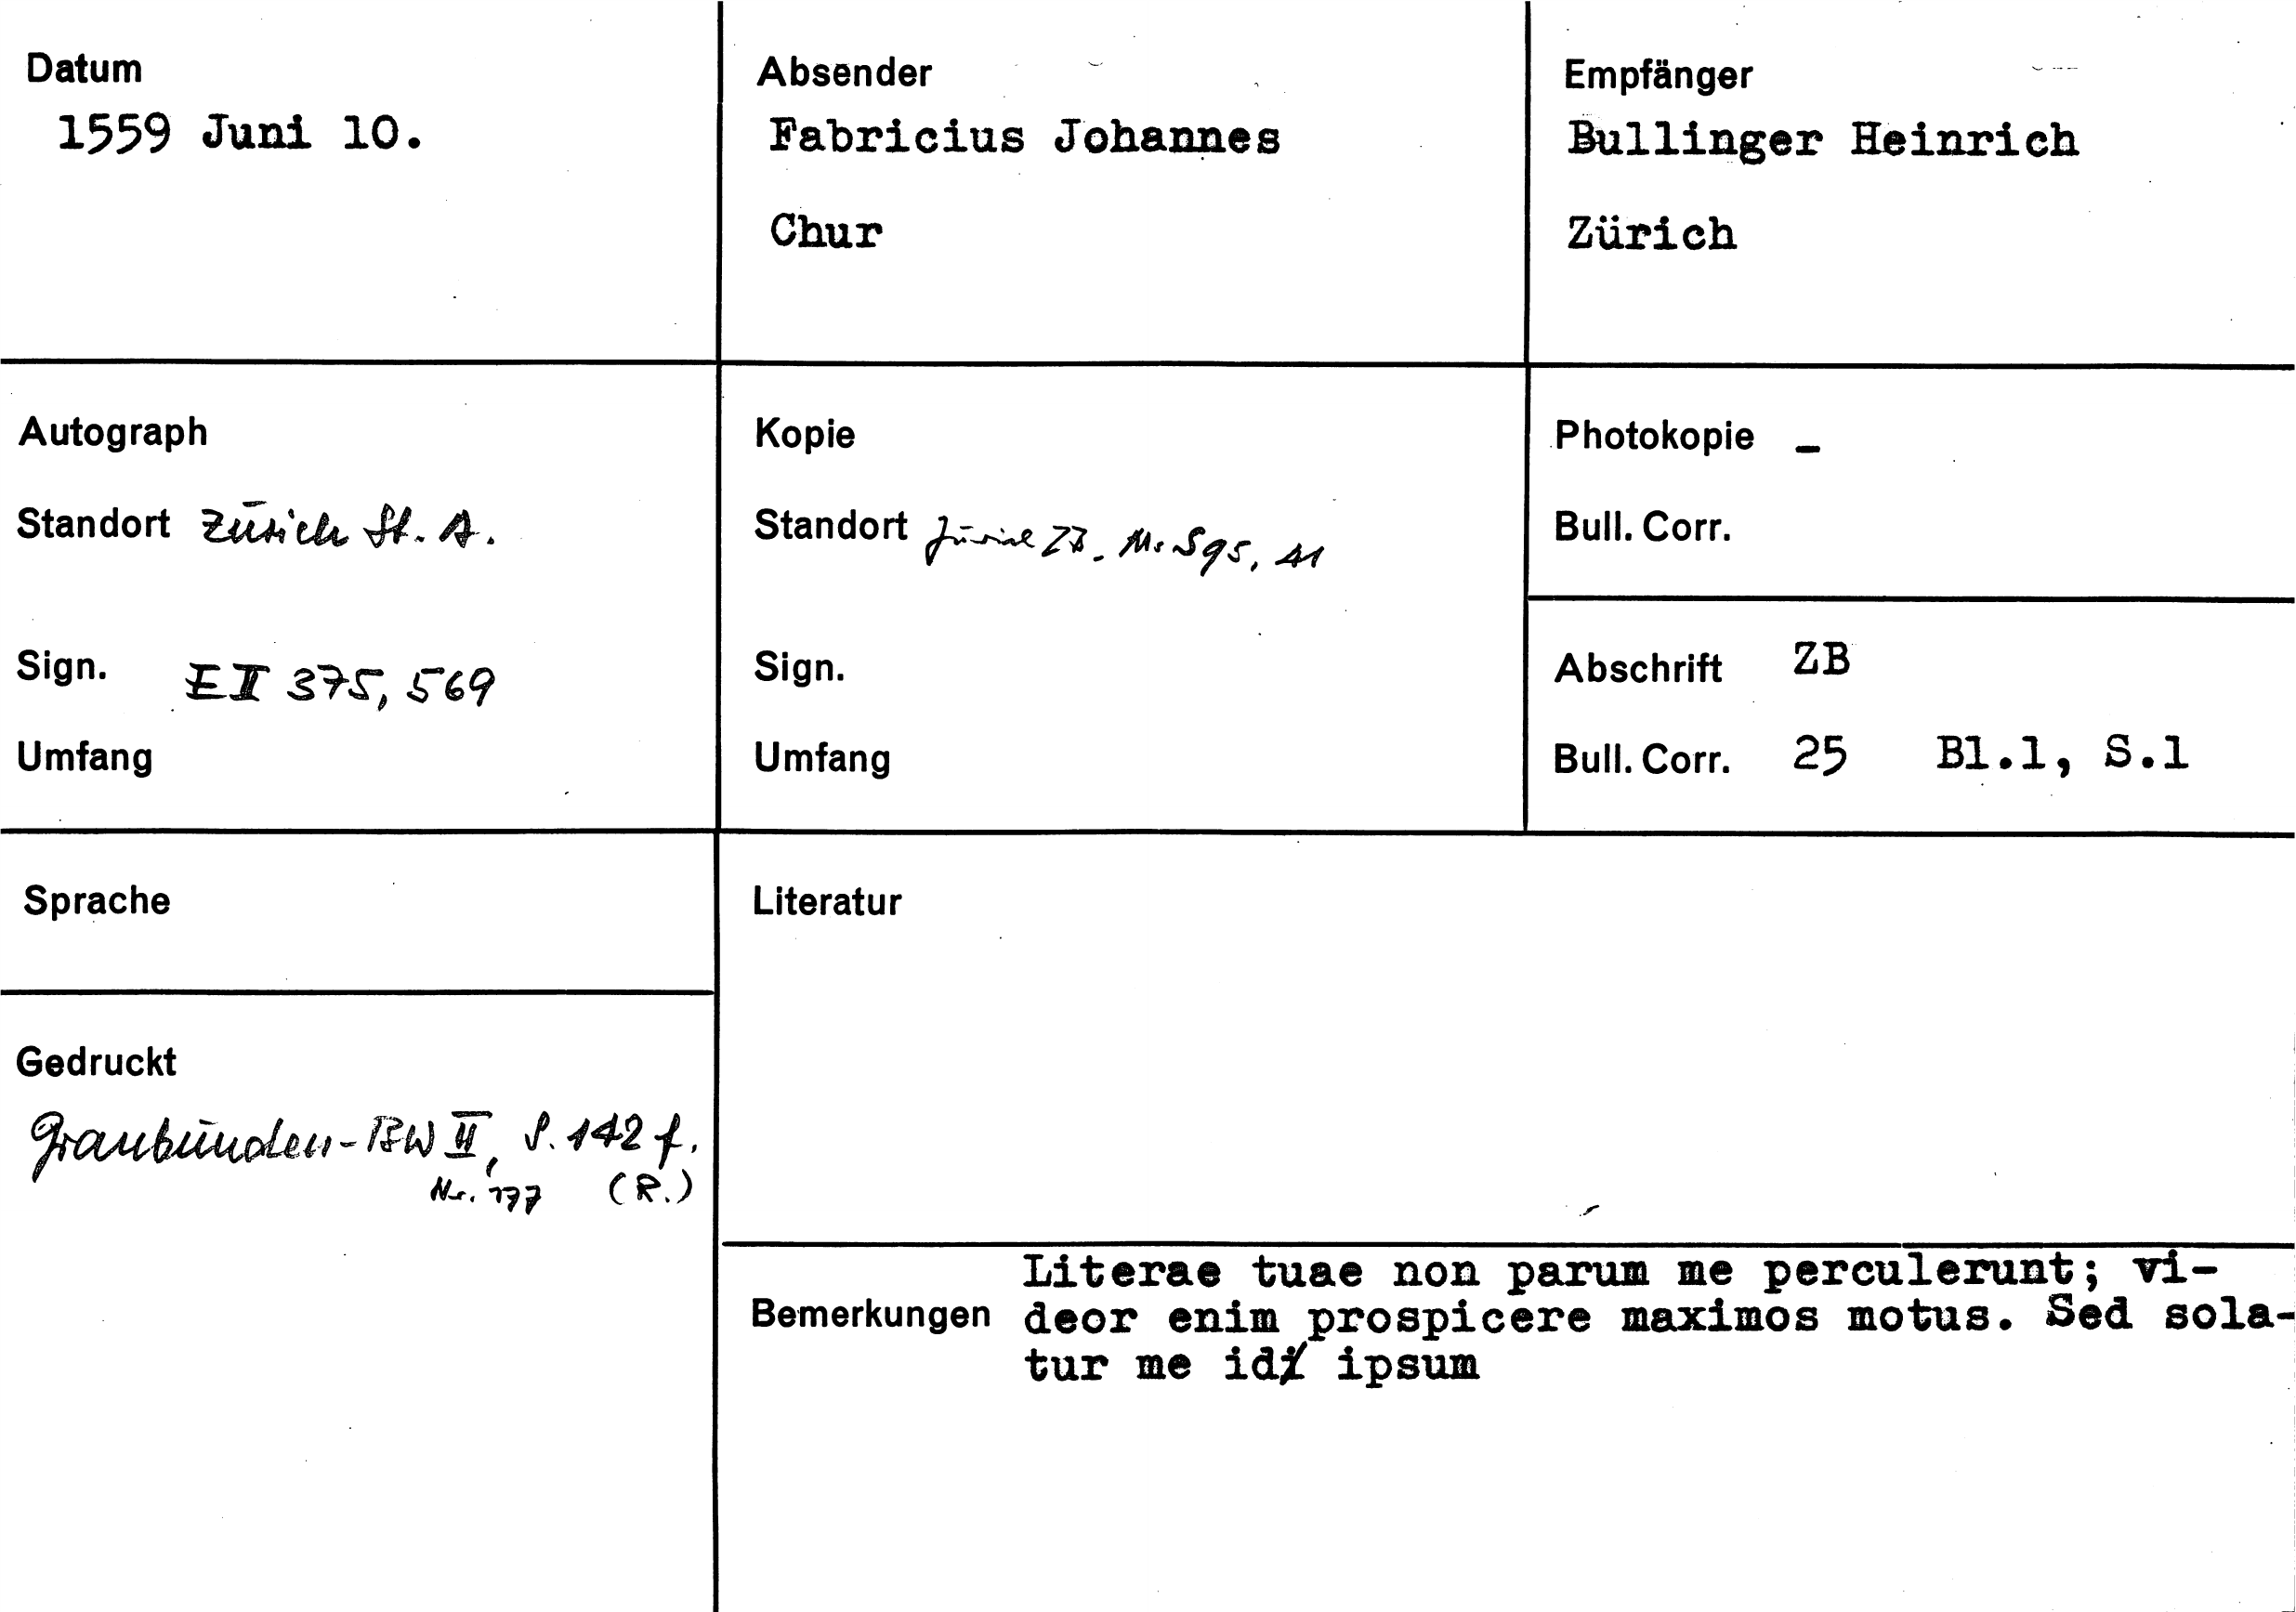 Datum
1559 Juni 10.
Absender
Fabricius Johannes
Chur
Empfänger
Bullinger Heinrich
Zürich
Autograph
Standort Zürich St. A.
Sign. E II 375, 569
Umfang
Kopie
Standort Zürich ZB. Ms S 95, 41
Sign.
Umfang
Photokopie -
Bull. Corr.
Abschrift ZB
Bull. Corr. 25 Bl.1, S.1
Sprache
Gedruckt
Graubünden-BW II, S. 142 f.
Nr. 177 (R.)
Literatur
Bemerkungen
Literae tuae non parum me perculerunt; vi-
deor enim prospicere maximos motus. Sed sola-
tur me id ipsum